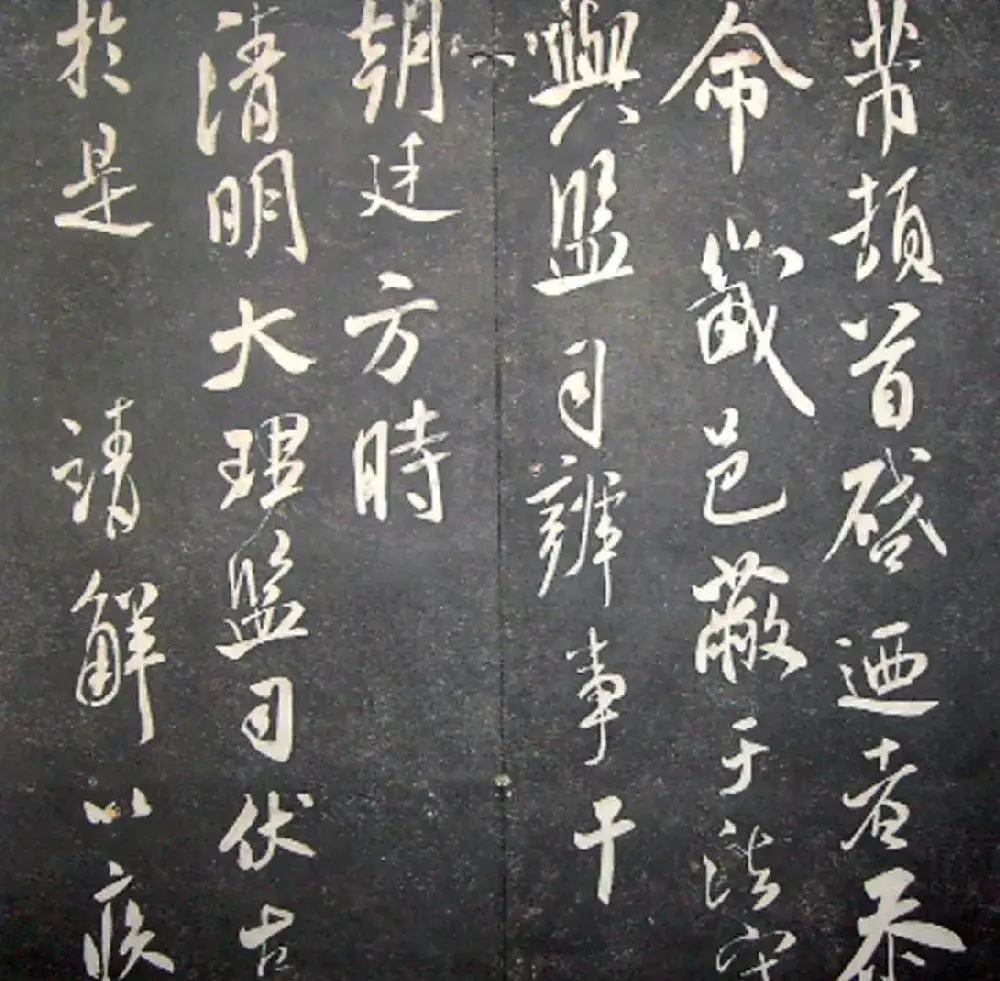 芾頓首啓迺者忝
命畿邑蔽于法守
與監司辨事干
朝廷方時
清明大理監司伏
於是請解以疾